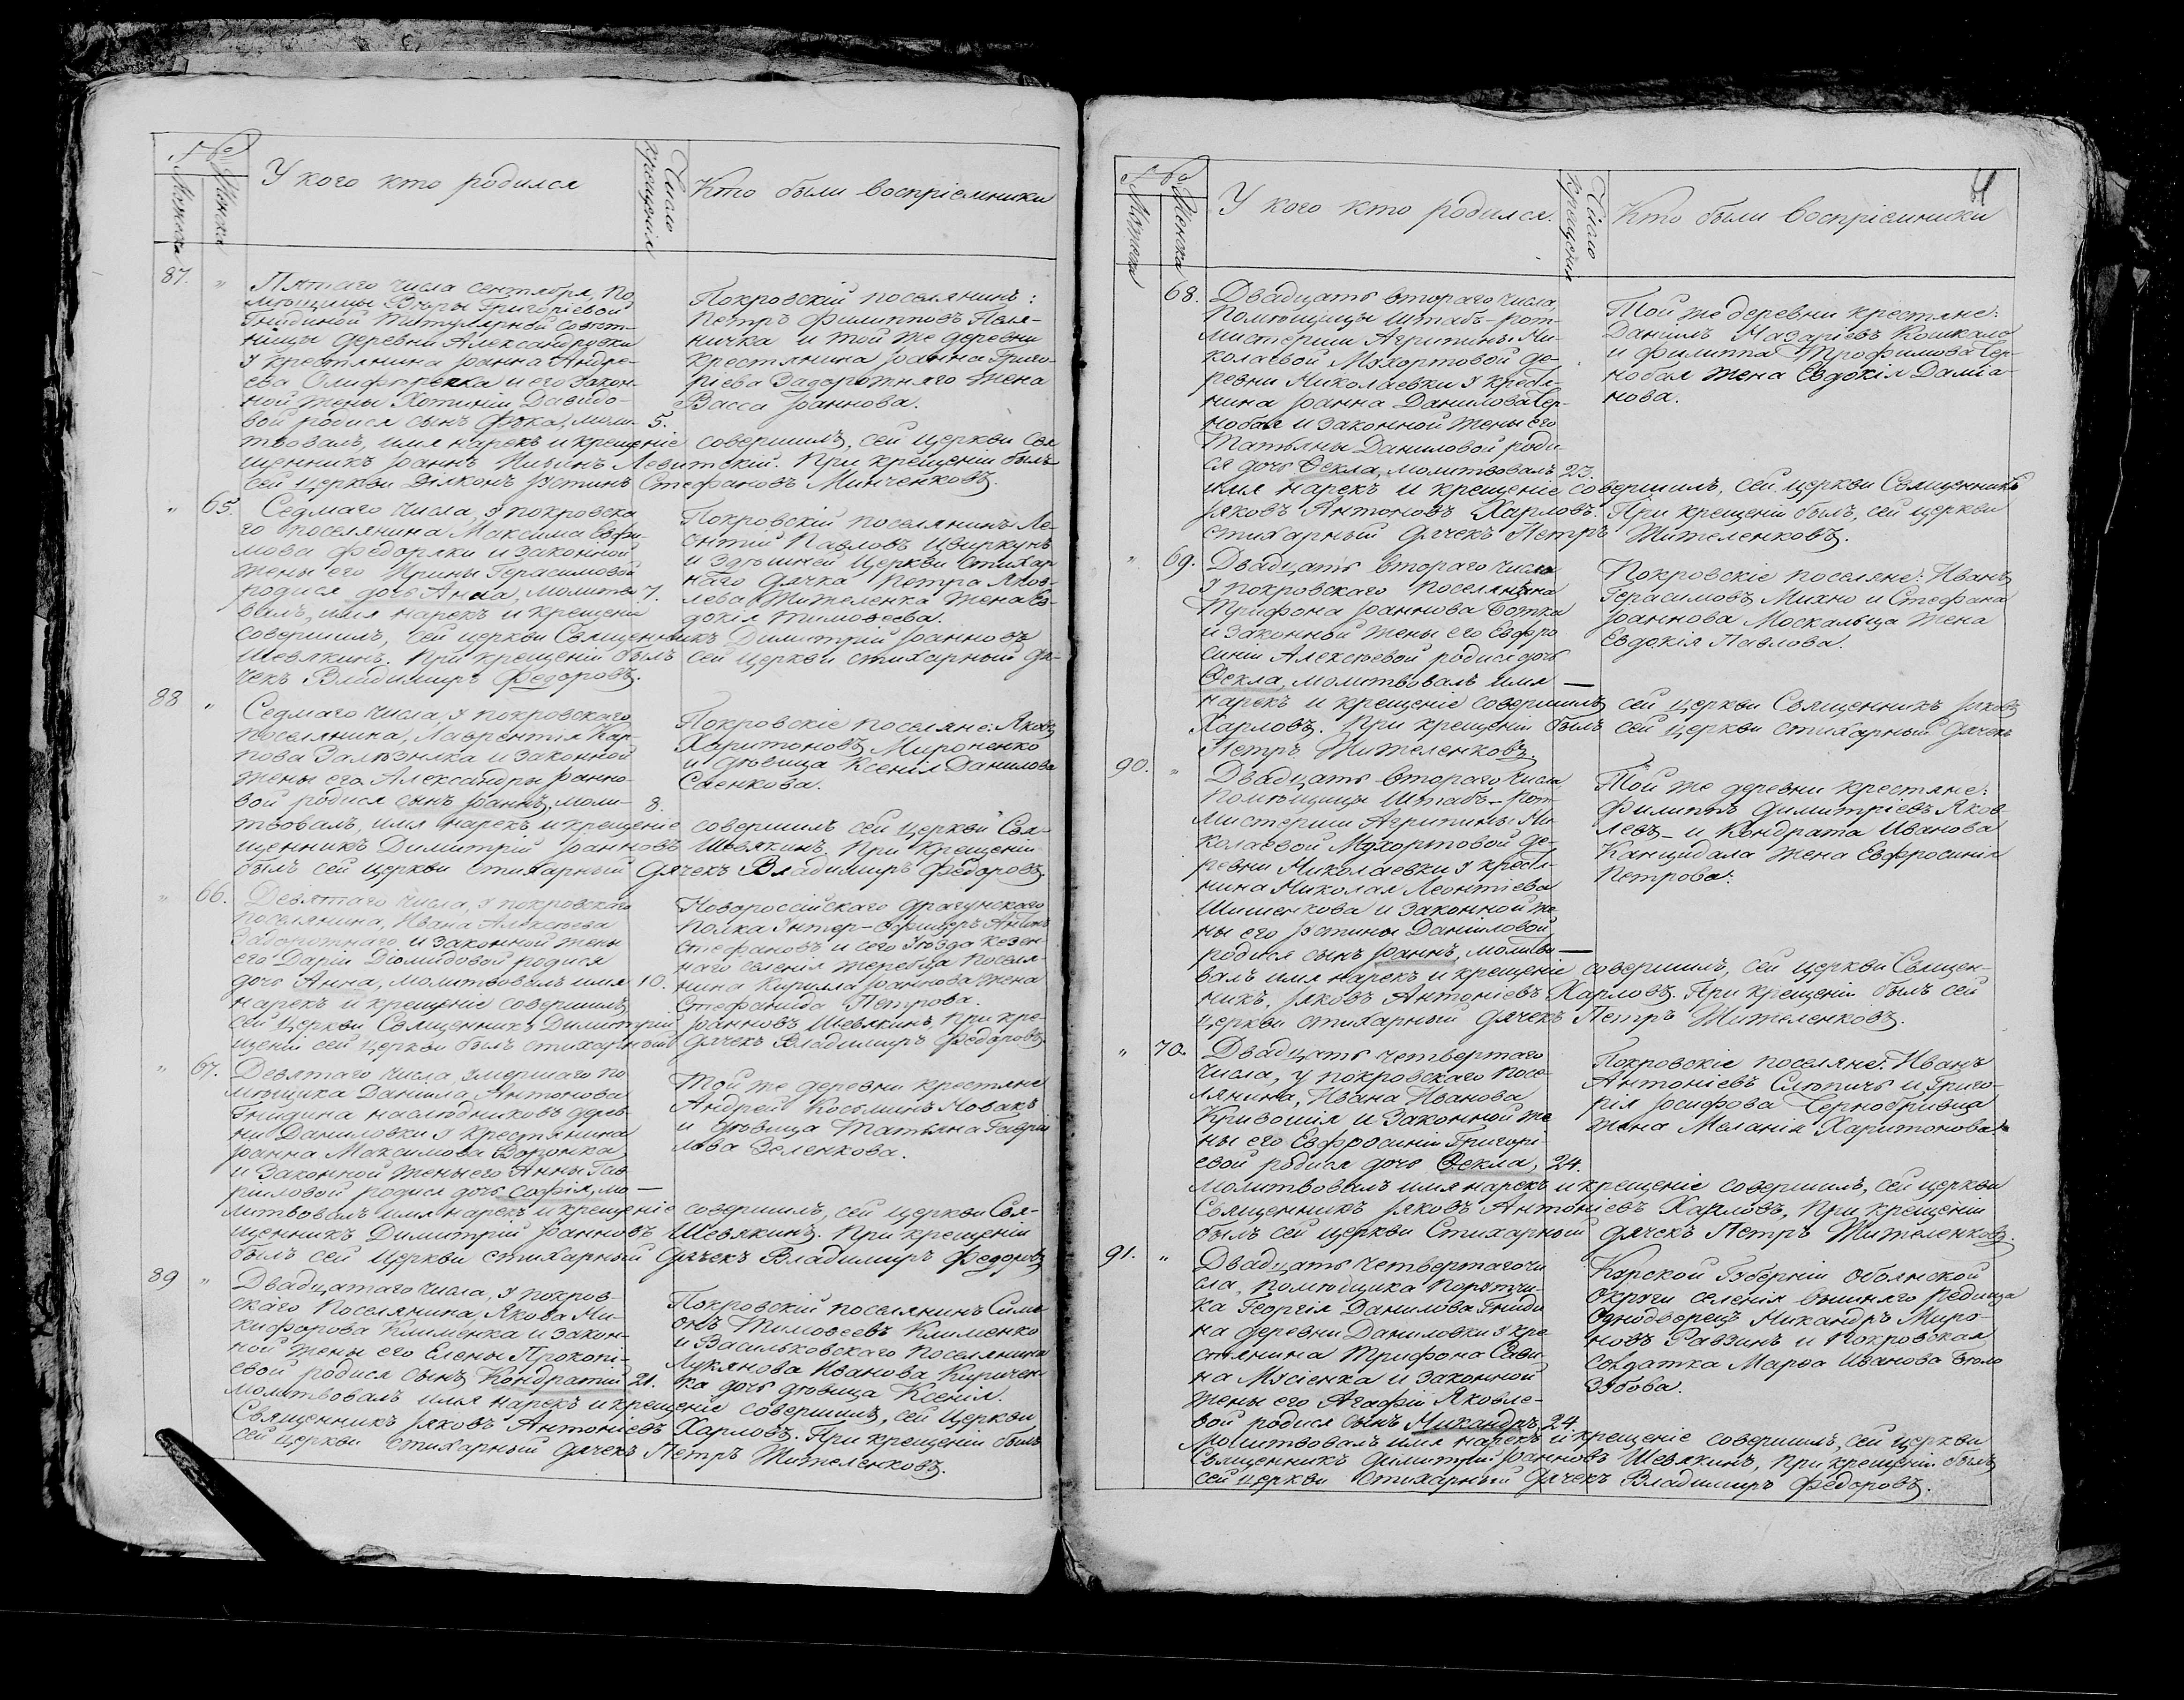 №
Мужеска
Женска
У кого кто родился
Число
крещенія
Кто были воспріемники
87.
Пятаго числа сентября, По
мѣщицы Вѣры Григоріевой
Гнидиной Титулярной Совѣт-
ницы деревни Александровки
у крестянина Іоанна Андре-
ева Олифѣренка и его закон-
ной жены Хотиніи Давидо-
вой родися сынъ Фока, моли- 5.
твовалъ, имя нарекъ и крещеніе совершилъ, сей церкви Свя
щенникъ Іоаннъ Ильинъ Левитскій. При крещеніи былъ
сей церкви Діяконъ Іустинъ Стефановъ Минченковъ.
Покровскій поселянинъ:
Петръ Филипповъ Поля-
ничка и той же деревни
крестянина Іоанна Григо-
ріева Задорожняго жена
Васса Іоаннова.
" 65.
Седмаго числа, у покровска
го поселянина Максима Евфи-
мова Федоряки и законной
жены его Ирины Герасимовой
родися дочь Анна, молитво 7.
валъ, имя нарекъ и крещеніе
совершилъ, сей церкви Священникъ Димитрій Іоанновъ
Шевякинъ. При крещеніи былъ сей церкви стихарный дя-
чекъ Владимиръ Федоровъ.
Покровскій поселянинъ Ле-
онтій Павловъ Цвиркунъ
и здѣшней церкви стихар
наго дячка Петра Яков-
лева Жителенка жена Ев-
докія Тимоѳеева.
88 "
Седмаго числа, у покровскаго
поселянина, Лаврентія Кар-
пова Залѣзника и законной
жены его Александры Іоанно-
вой родися сынъ Іоаннъ, моли- 8.
твовалъ, имя нарекъ и крещеніе совершилъ сей церкви Свя-
щенникъ Димитрій Іоанновъ Шевякинъ. При крещеніи
былъ сей церкви стихарный дячекъ Владимиръ Федоровъ.
Покровскіе поселяне: Яковъ
Харитоновъ Мироненко
и дѣвица Ксенія Данилова
Саенкова.
" 66.
Девятаго числа, у покровскаго
поселянина, Ивана Алексѣева
Задорожнаго и законной жены
его Даріи Діомидовой родися
дочь Анна, молитвовалъ имя 10.
нарекъ и крещеніе совершилъ
сей церкви Священникъ Димитрій Іоанновъ Шевякинъ, При кре-
щеніи сей церкви былъ стихарный дячекъ Владимиръ Федоровъ
Новороссійскаго драгунскаго
полка Унтер-Офицеръ Антонъ
Стефановъ и сего уѣзда казен-
наго селенія Жеребца поселя-
нина Кирилла Іоаннова жена
Стефанида Петрова.
" 67.
Девятаго числа, умершаго по
мѣщика Даніила Антонова
Гнидина наслѣдниковъ дерев-
ни Даниловки у крестянина
Іоанна Максимова Воронка
и законной жены его Анны Гав
риловой родися дочь Софія, мо —
литвовалъ имя нарекъ и крещеніе совершилъ, сей церкви Свя-
щенникъ Димитрій Іоанновъ Шевякинъ. При крещеніи
былъ сей церкви стихарный дячекъ Владимиръ Федоровъ
Той же деревни крестяне
Андрей Косьминъ Новакъ
и дѣвица Татьяна Гаври
лова Зеленкова.
89 "
Двадцатаго числа, у покров-
скаго поселянина, Якова Ни-
кифорова Клименка и закон-
ной жены его Елены Прокопі-
евой родися сынъ Кондратій 21.
молитвовалъ имя нарекъ и крещеніе совершилъ, сей церкви
Священникъ Іяковъ Антоніевъ Харловъ. При крещеніи былъ
сей церкви стихарный дячекъ Петръ Жителенковъ.
Покровскій поселянинъ Симе
онъ Тимоѳеевъ Клименко
и Васильковскаго поселянина
Лукянова Иванова Киричен
ка дочь дѣвица Ксенія.
№
Мужеска
Женска
У кого кто родился.
Число
крещенія
Кто были воспріемники
68.
Двадцать втораго числа
Помѣщицы Штабъ-рот-
мистерши Агрипины Ни-
колаевой Махортовой де-
ревни Николаевки у крестя-
нина Іоанна Данилова Чер-
нобая и законной жены его
Татьяны Даниловой роди
ся дочь Ѳекла, молитвовалъ 23.
имя нарекъ и крещеніе совершилъ, сей церкви Священникъ
Іяковъ Антоновъ Харловъ. При крещеніи былъ, сей церкви
стихарный дячекъ Петръ Жителенковъ.
Той же деревни крестяне:
Даніилъ Назаріевъ Кошкало
и Филиппа Трофимова Чер-
нобая жена Евдокія Даміа-
нова.
" 69.
Двадцать втораго числа
у покровскаго поселянина
Трифона Іоаннова Божка
и законной жены его Евфро
синіи Алексѣевой родися дочь
Ѳекла, молитвовалъ имя —
нарекъ и крещеніе совершилъ сей церкви Священникъ Іяковъ
Харловъ. При крещеніи былъ сей церкви стихарный дячекъ
Петръ Жителенковъ.
Покровскіе поселяне: Иванъ
Герасимовъ Михно и Стефана
Іоаннова Москальца жена
Евдокія Павлова.
90. "
Двадцать втораго числа
Помѣщицы Штабъ-рот-
мистерши Агрипины Ни-
колаевой Махортовой де-
ревни Николаевки у крестя-
нина Николая Леонтіева
Шишенкова и законной же
ны его Іустины Даніиловой
родися сынъ Іоаннъ, молитво —
валъ имя нарекъ и крещеніе совершилъ, сей церкви Священ-
никъ, Іяковъ Антоніевъ Харловъ. При крещеніи былъ сей
церкви стихарный дячекъ Петръ Жителенковъ.
Той же деревни крестяне:
Филиппъ Димитріевъ Яков
левъ и Кондрата Иванова
Канцидала жена Евфросинія
Петрова.
" 70.
Двадцать четвертаго
числа, у покровскаго посе-
лянина, Ивана Иванова
Кривошія и законной же
ны его Евфросиніи Григорі-
евой родися дочь Ѳекла, 24.
молитвовалъ имя нарекъ и крещеніе совершилъ, сей церкви
Священникъ Іяковъ Антоніевъ Харловъ, При крещеніи
былъ сей церкви Стихарный дячекъ Петръ Жителенковъ.
Покровскіе поселяне: Иванъ
Антоніевъ Слюпичъ и Григо-
рія Іосифова Чернобривца
жена Меланія Харитонова.
91. "
Двадцать четвертаго чи
сла, помѣщика Порутчи-
ка Георгія Данилова Гниди
на деревни Даниловки у кре
стянина Трифона Сави-
на Мусіенка и законной
жены его Агафіи Яковле-
вой родися сынъ Никандръ, 24
молитвовалъ имя нарекъ и крещеніе совершилъ, сей церкви
Священникъ Димитрій Іоанновъ Шевякинъ, При крещеніи былъ
сей церкви Стихарный дячекъ Владимиръ Федоровъ.
Курской Губерніи Обоянской
округи селенія вышняго Редница
Однодворецъ Никандръ Миро-
новъ Равзинъ и Покровская
солдатка Марѳа Иванова Бѣло
зубова.